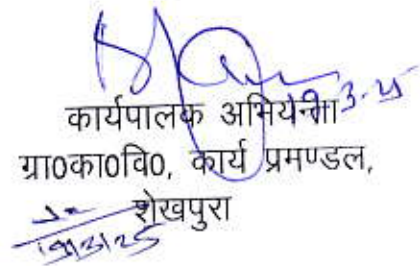 कार्यपालक अभियन्ता
ग्रा0का0वि0, कार्य प्रमण्डल,
शेखपुरा
19/3/25